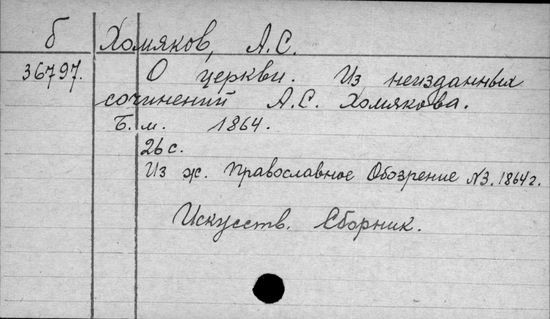 б Хомяков, А.С.
36797. О церкви. Из неизданных
сочинений А.С. Хомякова.
Б.м. 1864.
26 с.
Из ж. Православное Обозрение №3. 1864 г.
Искусств. Сборник.